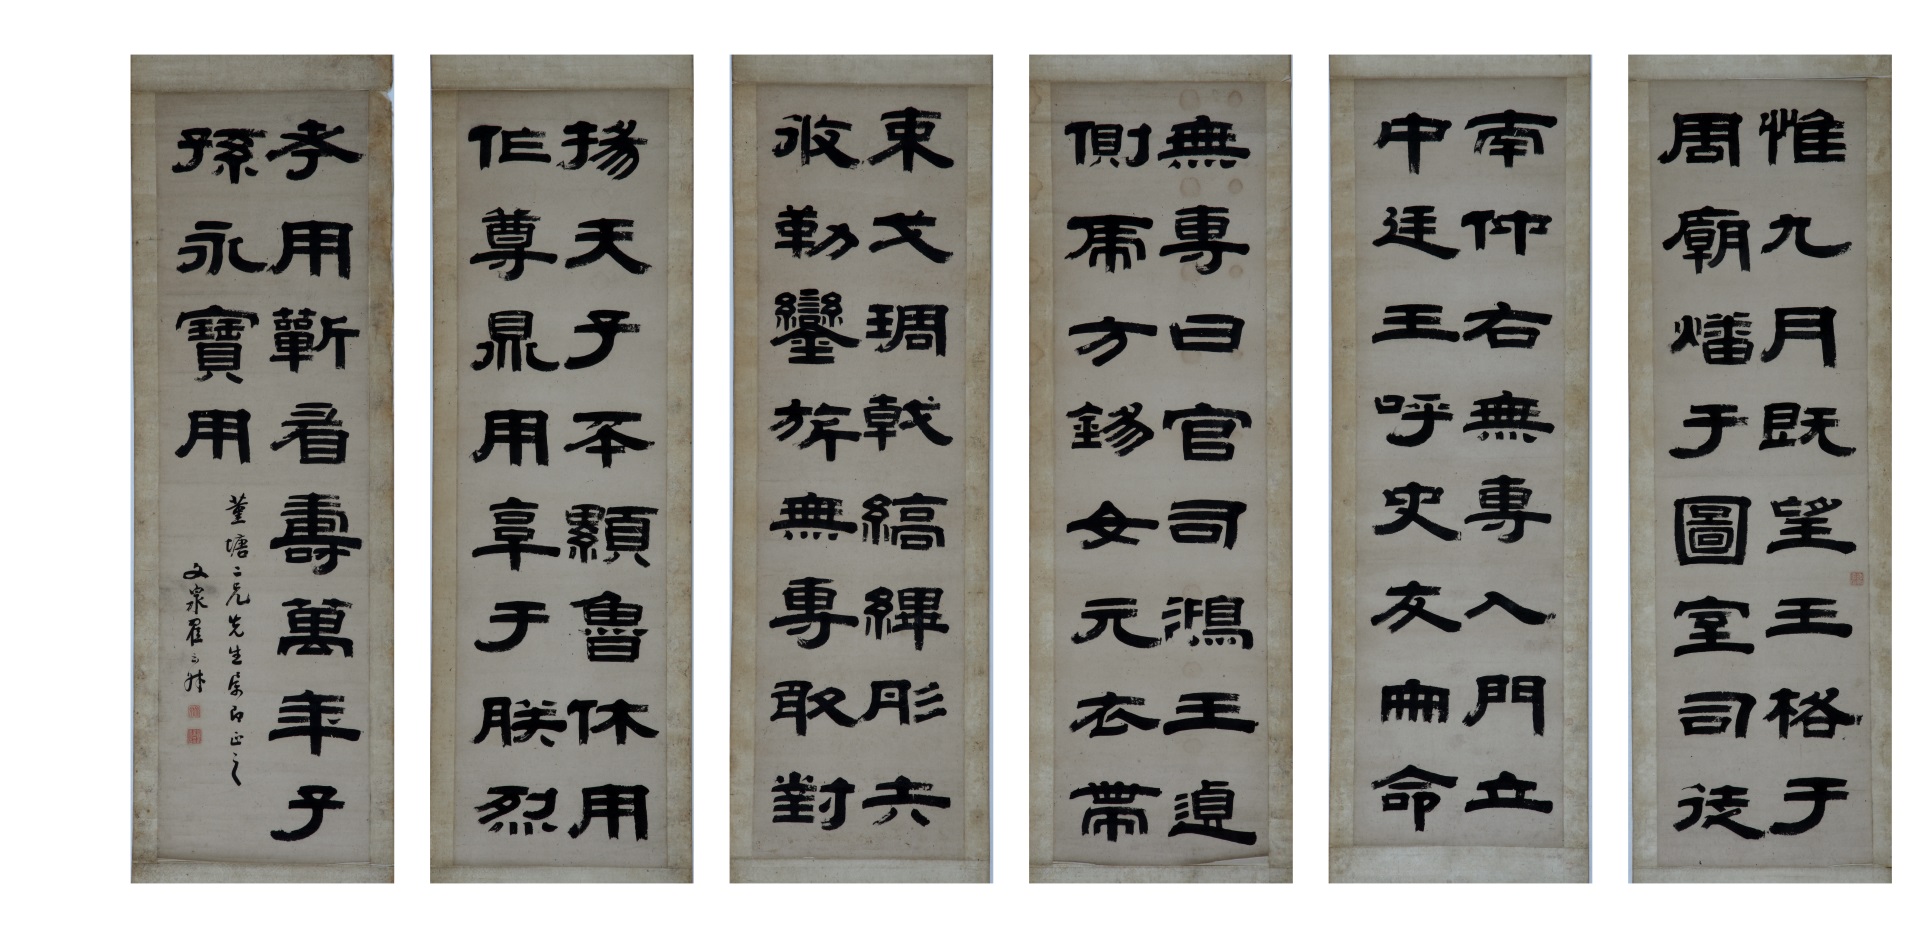 惟九月既望王格于
周廟燔于圖室司徒
南仲右無專入門立
中廷王呼史友冊命
無專曰官司鴻王遉
側虎方錫女元衣帶
束戈琱戟縞繟彤夫
攸勒鑾旂無專敢對
揚天子不顯魯休用
作尊鼎用享于朕烈
孝用蘄眉壽萬年子
孫永寶用
堇塘二兄先生屬即正之
文泉翟云升